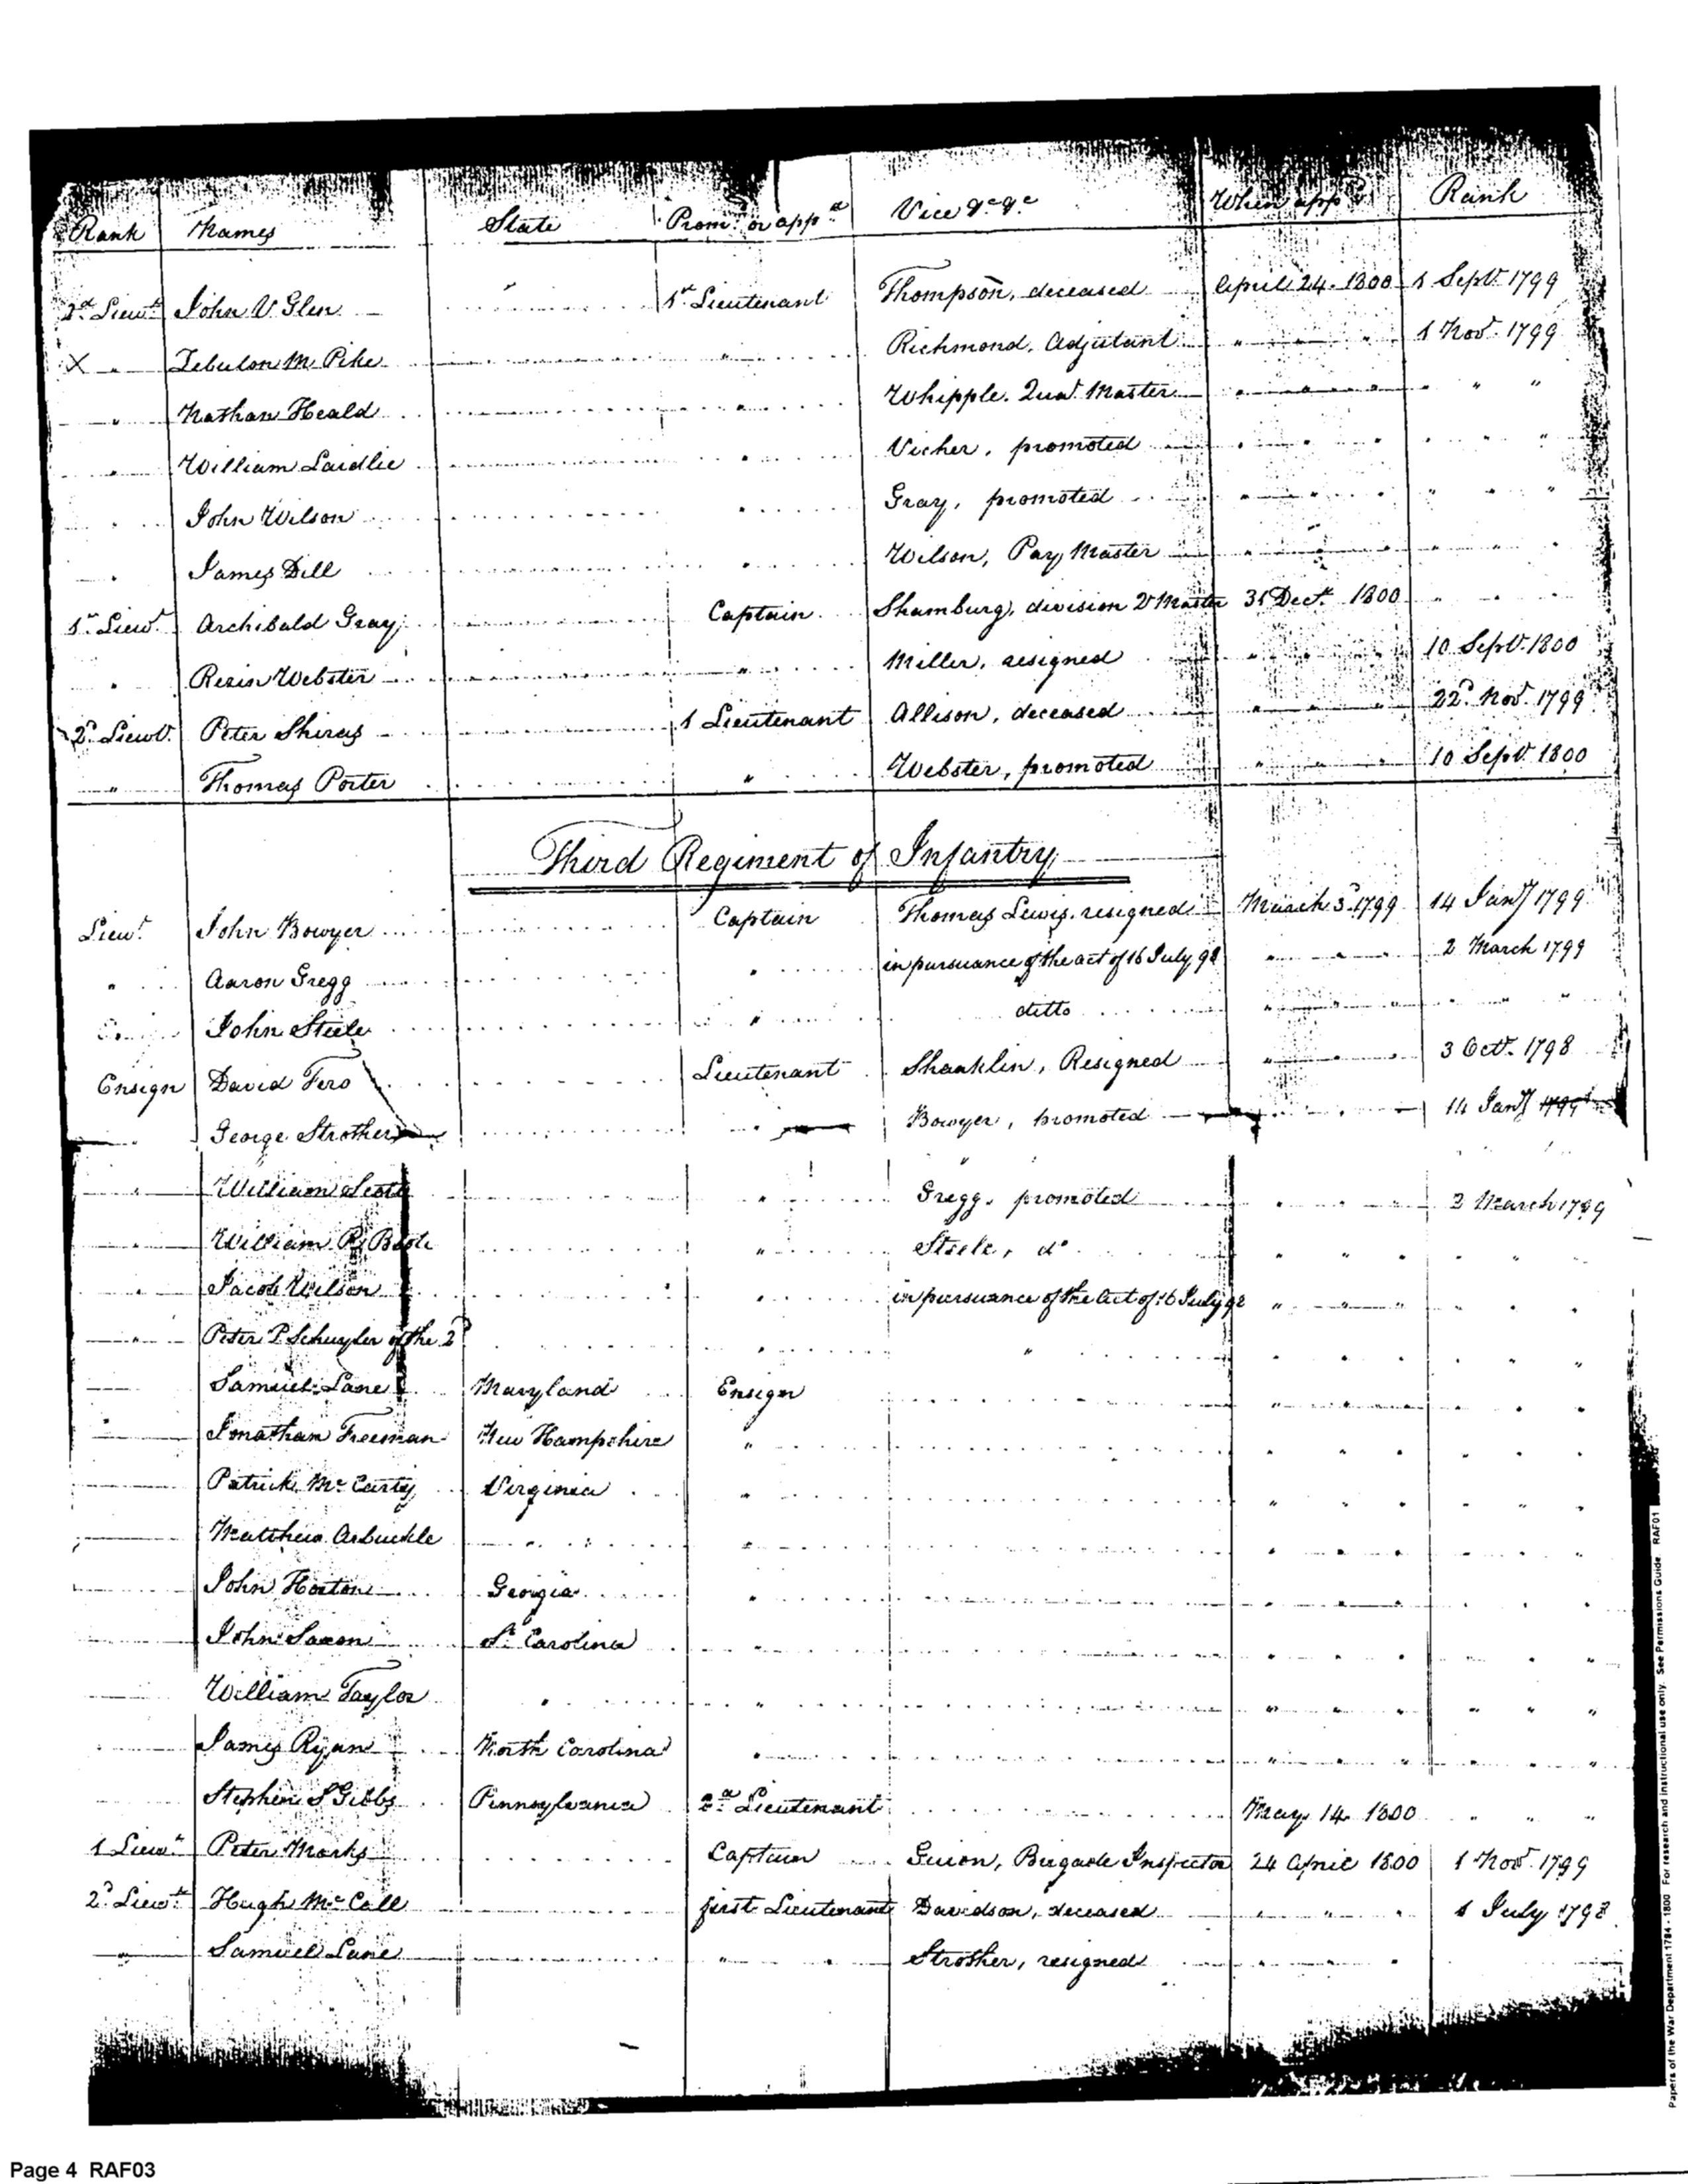 Rank Names State Prom.t or app.d Vice &c &c When app.d Rank
2.d Lieut. John V Glen 1st Lieutenant Thompson, deceased April 24. 1800 1 Sept. 1799
X " Zebulon M. Pike " Richmond, Adjutant " " 1 Nov. 1799
" Nathan Heald " Whipple. Qua.r Master " " " " "
" William Laidlie " Vicher, promoted " " " " "
" John Wilson " Gray, promoted " " " " "
" James Dill " Wilson, Pay Master " " " " "
1st Lieut. Archibald Gray Captain Shamburg, division Q Master 31 Dec.r 1800 " " "
" Rezin Webster " Miller, resigned " " 10 Sept. 1800
2.d Lieut. Peter Shiras 1 Lieutenant Allison, deceased " " 22.d Nov. 1799
" Thomas Porter " Webster, promoted " " 10 Sept. 1800
Third Regiment of Infantry
Lieut. John Bowyer Captain Thomas Lewis, resigned March 3.d 1799 14 Jany 1799
" Aaron Gregg " in pursuance of the act of 16 July 98 " " 2 March 1799
John Steele " ditto " " " " "
Ensign David Fero Lieutenant Shanklin, Resigned " " 3 Oct. 1798
George Strother " Bowyer, promoted " 14 Jany 1799
" William Scott " Gregg, promoted " " " 3 March 1799
" William R. Boote " Steele, do " " " " "
" Jacob Wilson " in pursuance of the Act of 16 July 98 " " " " "
" Peter P. Schuyler of the 2d " " " " " " "
Samuel Lane Maryland Ensign " " " " "
" Jonathan Freeman New Hampshire " " " " " "
Patrick McCarty Virginia " " " " " "
Matthew Arbuckle " " " " " " "
John Horton Georgia " " " " " "
John Saxon So. Carolina " " " " " "
William Taylor " " " " " " "
James Ryan North Carolina " " " " " "
Stephen S Gibbs Pennsylvania 2.d Lieutenant May 14 1800 " " "
1 Lieut. Peter Marks Captain Guion, Brigade Inspector 24 April 1800 1 Nov. 1799
2.d Lieut. Hugh McCall first Lieutenant Davidson, deceased " " " 1 July 1798
" Samuel Lane " " Strother, resigned " " "
Papers of the War Department 1784 - 1800 For research and instructional use only. See Permissions Guide RAF01
Page 4 RAF03